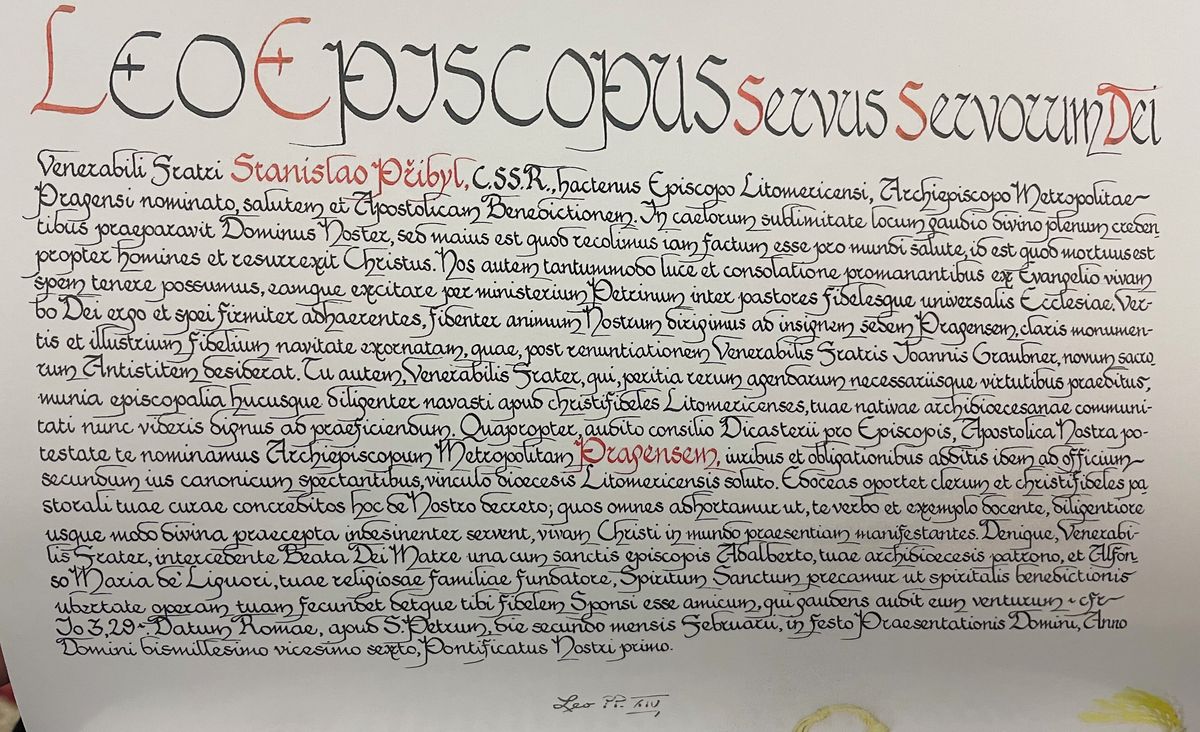 Leo Episcopus Servus Servorum Dei
Venerabili Fratri Stanislao Přibyl, C.SS.R., hactenus Episcopo Litomericensi, Archiepiscopo Metropolitae
Pragensi nominato, salutem et Apostolicam Benedictionem. In caelorum sublimitate locum gaudio divino plenum creden-
tibus praeparavit Dominus Noster, sed maius est quod recolimus iam factum esse pro mundi salute, id est quod mortuus est
propter homines et resurrexit Christus. Nos autem tantummodo luce et consolatione promanantibus ex Evangelio vivam
spem tenere possumus, eamque excitare per ministerium Petrinum inter pastores fidelesque universalis Ecclesiae. Ver-
bo Dei ergo et spei firmiter adhaerentes, fidenter animum Nostrum dirigimus ad insignem sedem Pragensem, claris monumen-
tis et illustrium fidelium navitate exornatam, quae, post renuntiationem Venerabilis Fratris Joannis Graubner, novum sacro
rum Antistitem desiderat. Tu autem, Venerabilis Frater, qui, peritia rerum agendarum necessariisque virtutibus praeditus,
munia episcopalia hucusque diligenter navasti apud christifideles Litomericenses, tuae nativae archidioecesanae communi-
tati nunc videris dignus ad praeficiendum. Quapropter, audito consilio Dicasterii pro Episcopis, Apostolica Nostra po-
testate te nominamus Archiepiscopum Metropolitam Pragensem, iuribus et obligationibus additis idem ad officium
secundum ius canonicum spectantibus, vinculo dioecesis Litomericensis soluto. Edoceas oportet clerum et christifideles pa
storali tuae curae concreditos hoc de Nostro decreto; quos omnes adhortamur ut, te verbo et exemplo docente, diligentiore
usque modo divina praecepta indesinenter servent, vivam Christi in mundo praesentiam manifestantes. Denique, Venerabi-
lis Frater, intercedente Beata Dei Matre una cum sanctis episcopis Adalberto, tuae archidioecesis patrono, et Alfon
so Maria de' Liguori, tuae religiosae familiae fundatore, Spiritum Sanctum precamur ut spiritalis benedictionis
ubertate operam tuam fecundet detque tibi fidelem Sponsi esse amicum, qui gaudens audit eum venturum - cfr
Io 3, 29 - Datum Romae, apud S. Petrum, die secundo mensis Februarii, in festo Praesentationis Domini, Anno
Domini bismillesimo vicesimo sexto, Pontificatus Nostri primo.
Leo PP. XIV